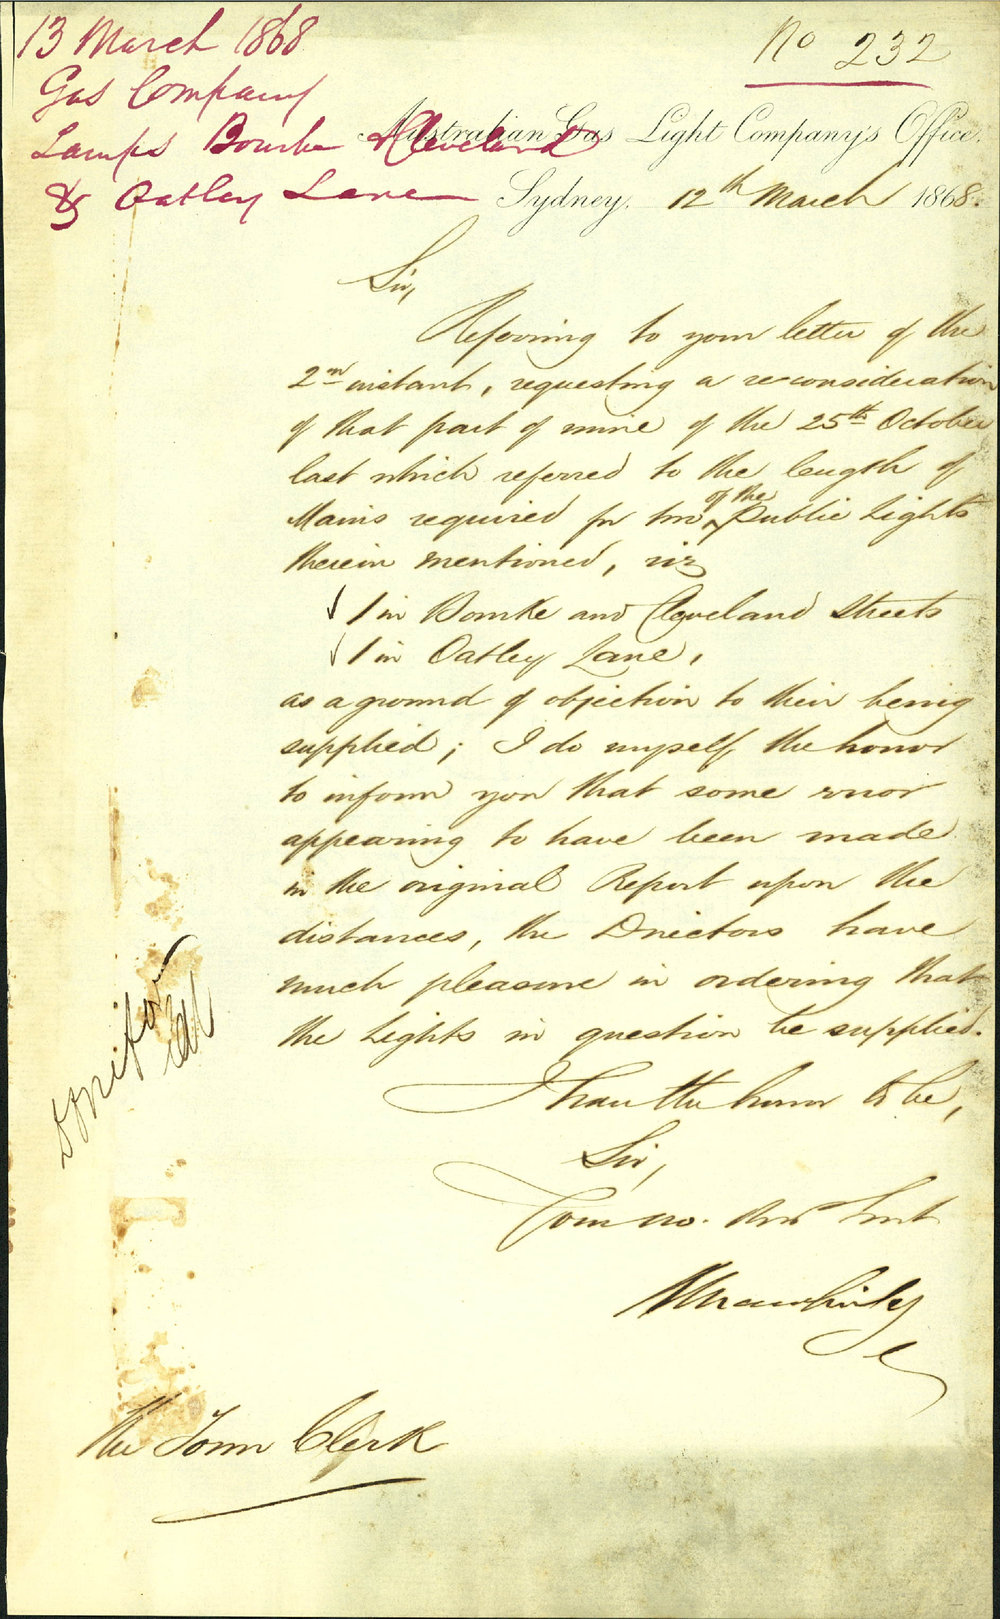 13 March 1868
Gas Company
Lamps Bourke & Cleveland
& Oatley Lane
No 232
Australian Gas Light Company's Office.
Sydney, 12th March 1868.
Sir,
Referring to your letter of the
2nd instant, requesting a reconsideration
of that part of mine of the 25th October
last which referred to the length of
Mains required for two of the Public Lights
therein mentioned, viz
1 in Bourke and Cleveland Streets
1 in Oatley Lane,
as a ground of objection to their being
supplied; I do myself the honor
to inform you that some error
appearing to have been made
in the original Report upon the
distances, the Directors have
much pleasure in ordering that
the Lights in question be supplied.
I have the honor to be,
Sir,
Your mo. Servt
The Town Clerk